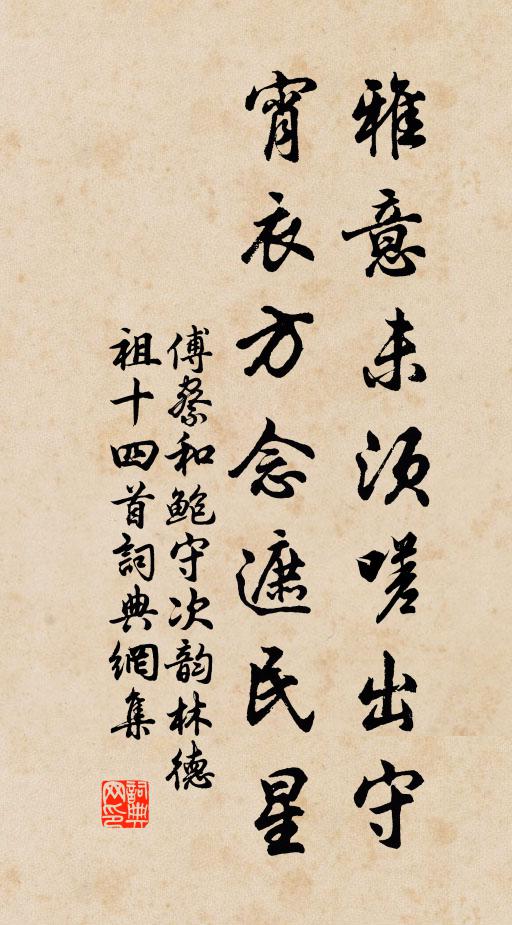 雅意未須嗟出守
宵衣方念遮民星
傅察和鮑守次韵林德
祖十四首詞典網集
詞典
网印